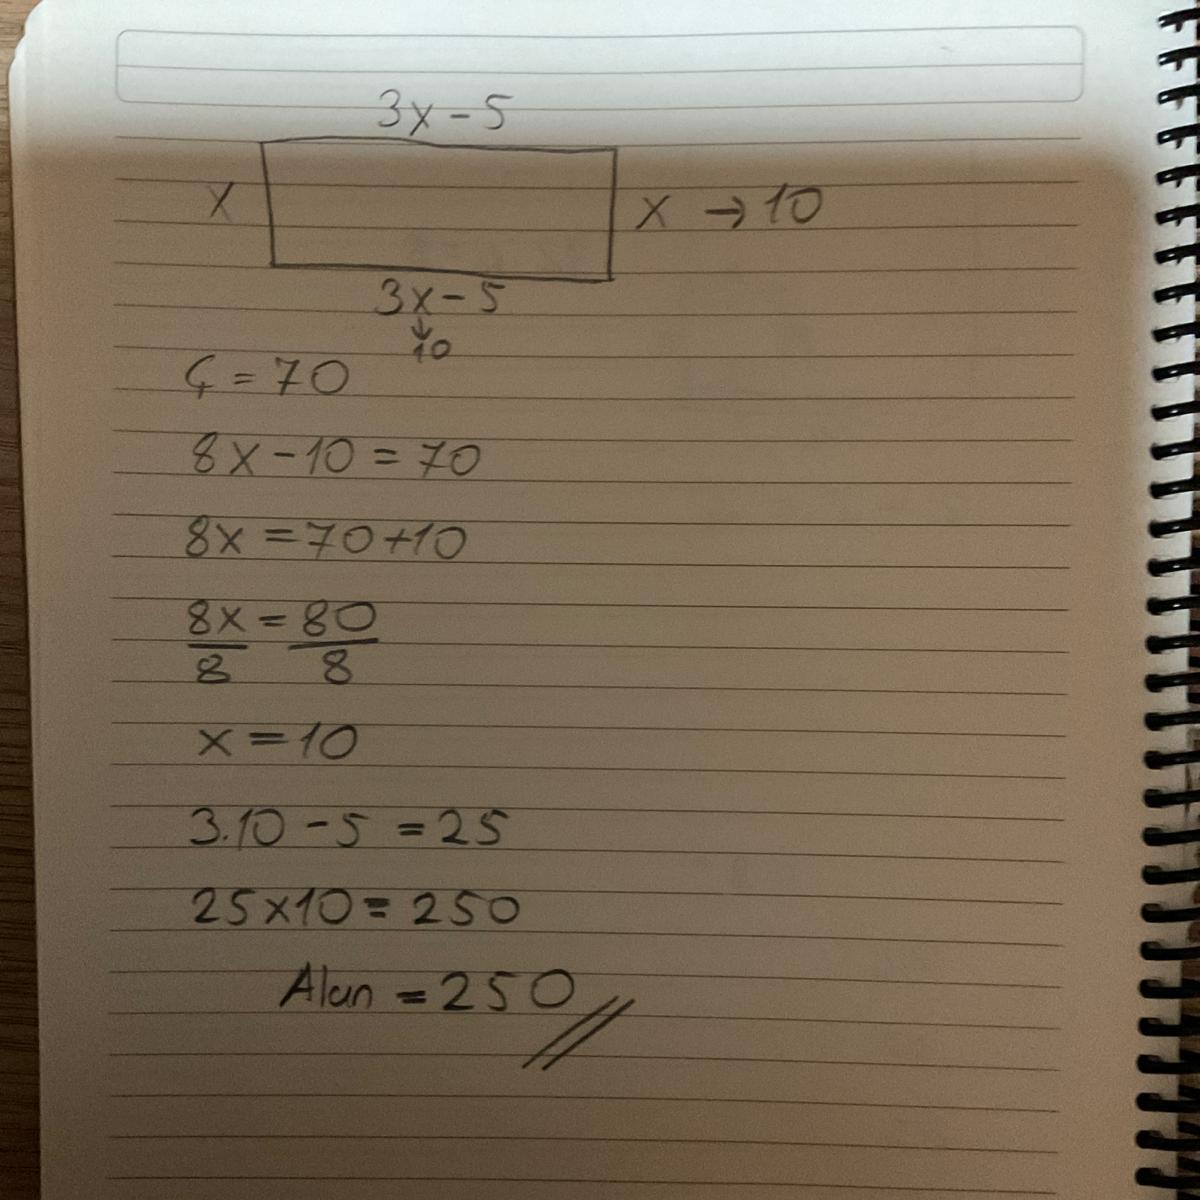 3x-5
x
x → 10
3x-5
↓
10
Ç = 70
8x-10 = 70
8x = 70+10
8x/8 = 80/8
x = 10
3.10 - 5 = 25
25x10 = 250
Alan = 250